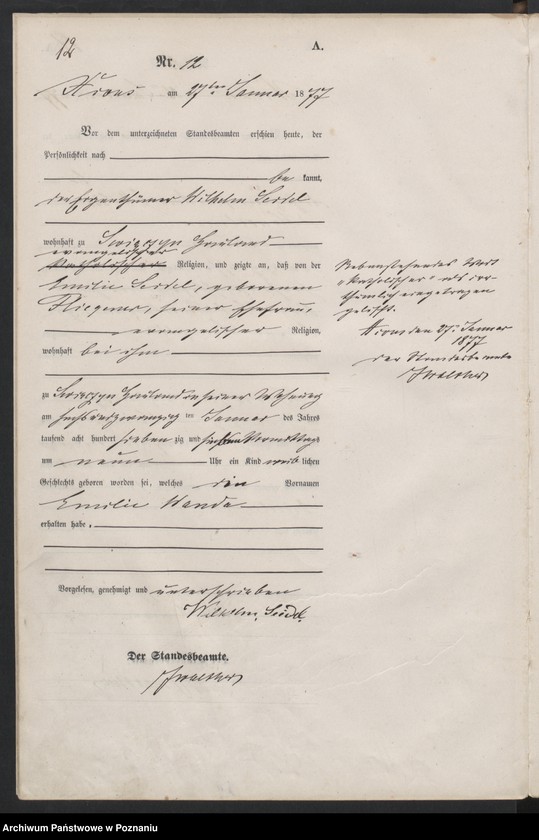 12
A.
Nr. 12
am 27ten Januar 1877
Vor dem unterzeichneten Standesbeamten erschien heute, der
Persönlichkeit nach
be kannt,
der Eigenthümer Wilhelm Seidel
wohnhaft zu Hauland
evangelischer
katholischer Religion, und zeigte an, daß von der
Emilie Seidel, geborenen
seiner Ehefrau,
evangelischer Religion,
wohnhaft bei ihm
zu Hauland in seiner Wohnung
am sechsundzwanzigten Januar des Jahres
tausend acht hundert sieben zig und sieben Vormittags
um neun Uhr ein Kind weiblichen
Geschlechts geboren worden sei, welches die Vornamen
Emilie Wanda
erhalten habe.
Vorgelesen, genehmigt und unterschrieben
Wilhelm Seidel
Der Standesbeamte.
Nebenstehendes Wort
„katholischer" als irr-
thümlich eingetragen
gelöscht.
den 27. Januar
1877
der Standesbeamte
Archiwum Państwowe w Poznaniu